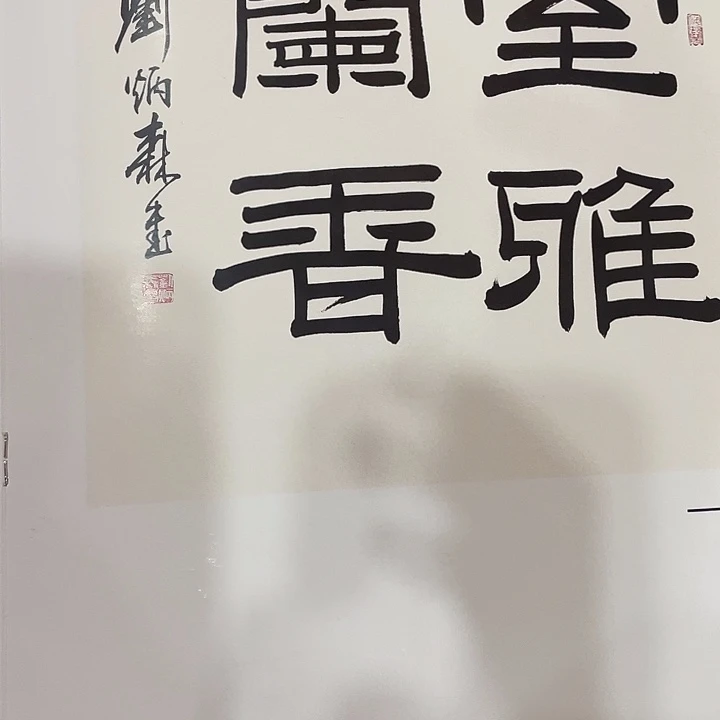 室雅
蘭香
劉炳森書